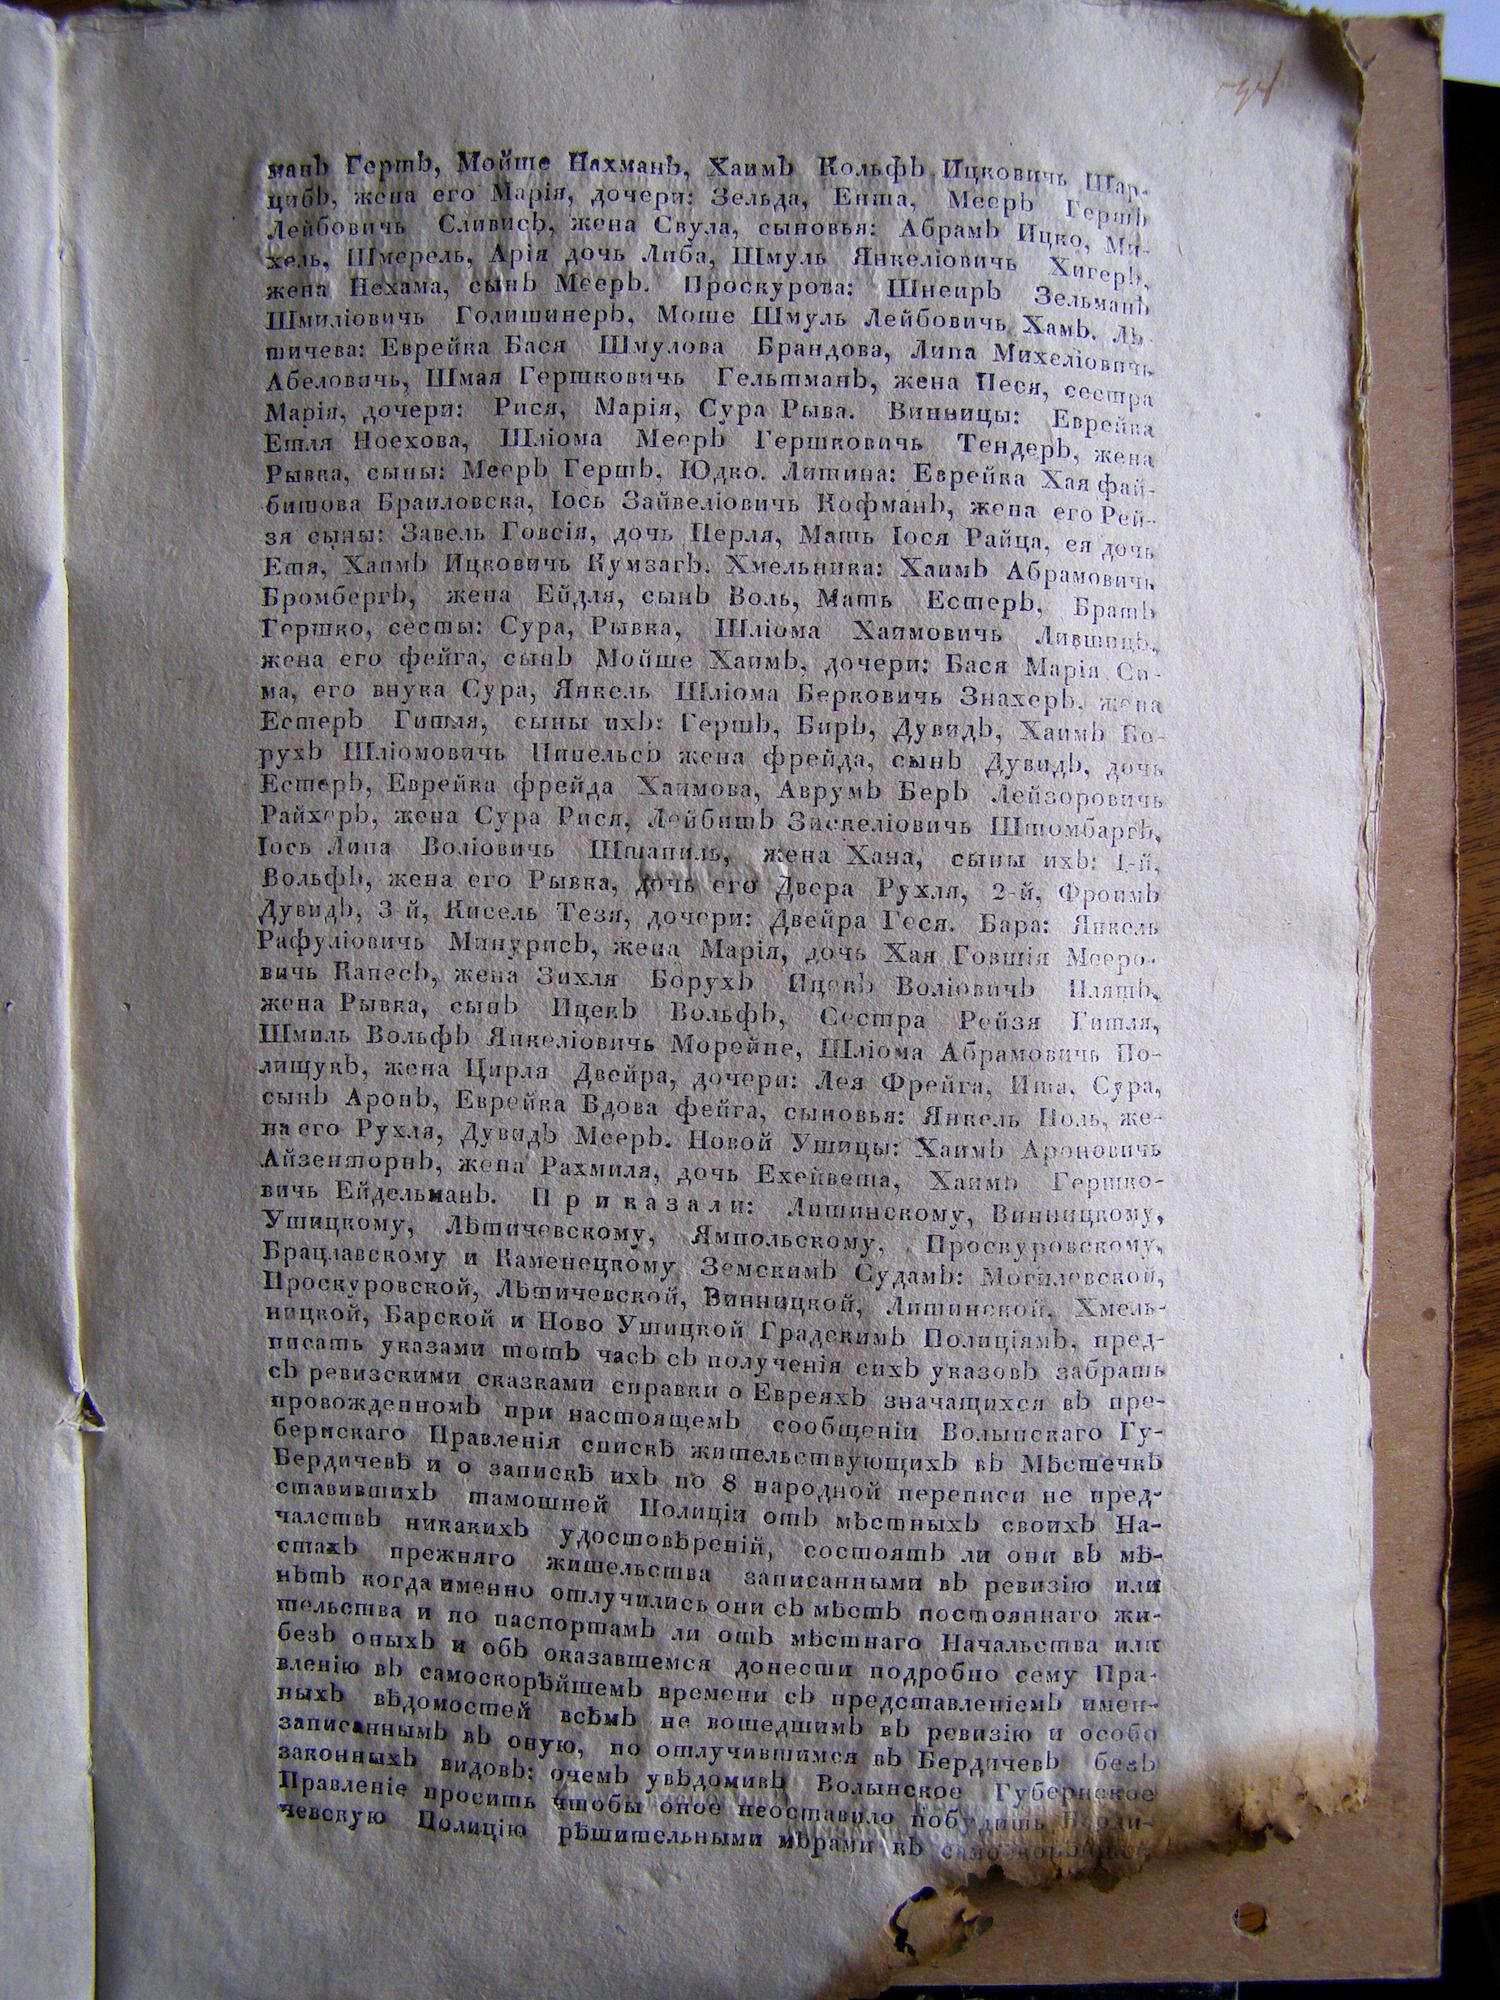 манъ Гершъ, Мойше Нахманъ, Хаимъ Кольфъ Ицковичь Шар-
цибъ, жена его Марія, дочери: Зельда, Енша, Мееръ Гершъ
Лейбовичь Сливисъ, жена Свула, сыновья: Абрамъ Ицко, Ми-
хель, Шмерель, Арія дочь Либа, Шмуль Янкеліовичь Хигеръ,
жена Нехама, сынъ Мееръ. Проскурова: Шнеиръ Зельманъ
Шмиліовичь Голишинеръ, Моше Шмуль Лейбовичь Хамъ. Лѣ-
тичева: Еврейка Бася Шмулова Брандова, Липа Михеліовичь
Абеловичь, Шмая Гершковичь Гельтманъ, жена Песя, сестра
Марія, дочери: Рися, Марія, Сура Рыва. Винницы: Еврейка
Етля Ноехова, Шліома Мееръ Гершковичь Тендеръ, жена
Рывка, сыны: Мееръ Гершъ, Юдко. Литина: Еврейка Хая фай-
битова Браиловска, Іось Зайвеліовичь Кофманъ, жена его Рей-
зя сыны: Завель Говсія, дочь Перля, Мать Іося Райца, ея дочь
Етя, Хаимъ Ицковичь Кумзагъ. Хмельника: Хаимъ Абрамовичь
Бромбергъ, жена Ейдля, сынъ Воль, Мать Естеръ, Братъ
Гершко, сесты: Сура, Рывка, Шліома Хаимовичь Лившицъ,
жена его фейга, сынъ Мойше Хаимъ, дочери: Бася Марія Си-
ма, его внука Сура, Янкель Шліома Берковичь Знахеръ, жена
Естеръ Гитля, сыны ихъ: Гершъ, Биръ, Дувидъ, Хаимъ Бо-
рухъ Шліомовичь Пипельсъ жена фрейда, сынъ Дувидъ, дочь
Естеръ, Еврейка фрейда Хаимова, Аврумъ Беръ Лейзоровичь
Райхеръ, жена Сура Рися, Лейбишъ Зискеліовичь Штомбаргъ,
Іось Липа Воліовичь Штапиль, жена Хана, сыны ихъ: 1-й,
Вольфъ, жена его Рывка, дочь его Двера Рухля, 2-й, Фроимъ
Дувидъ, 3-й, Кисель Тезя, дочери: Двейра Геся. Бара: Янкель
Рафуліовичь Минурисъ, жена Марія, дочь Хая Говшія Мееро-
вичь Капесъ, жена Зихля Борухъ Ицекъ Воліовичъ Плятъ,
жена Рывка, сынъ Ицекъ Вольфъ, Сестра Рейзя Гитля,
Шмиль Вольфъ Янкеліовичь Морейне, Шліома Абрамовичь По-
лищукъ, жена Цирля Двейра, дочери: Лея Фрейга, Ита, Сура,
сынъ Аронъ, Еврейка Вдова фейга, сыновья: Янкель Поль, же-
на его Рухля, Дувидъ Мееръ. Новой Ушицы: Хаимъ Ароновичь
Айзенторнъ, жена Рахмиля, дочь Ехейвета, Хаимъ Гершко-
вичь Ейдельманъ. Приказали: Литинскому, Винницкому,
Ушицкому, Лѣтичевскому, Ямпольскому, Проскуровскому,
Брацлавскому и Каменецкому Земскимъ Судамъ: Могилевской,
Проскуровской, Лѣтичевской, Винницкой, Литинской, Хмель-
ницкой, Барской и Ново Ушицкой Градскимъ Полиціямъ, пред-
писать указами тотъ часъ съ полученія сихъ указовъ забрать
съ ревизскими сказками справки о Евреяхъ значащихся въ пре-
провожденномъ при настоящемъ сообщеніи Волынскаго Гу-
бернскаго Правленія спискѣ жительствующихъ въ Мѣстечкѣ
Бердичевѣ и о запискѣ ихъ по 8 народной переписи не пред-
ставившихъ тамошней Полиціи отъ мѣстныхъ своихъ На-
чалствъ никакихъ удостовѣреній, состоятъ ли они въ мѣ-
стахъ прежняго жительства записанными въ ревизію или
нѣтъ когда именно отлучились они съ мѣстъ постояннаго жи-
тельства и по паспортамъ ли отъ мѣстнаго Начальства или
безъ оныхъ и объ оказавшемся донести подробно сему Пра-
вленію въ самоскорѣйшемъ времени съ представленіемъ имен-
ныхъ вѣдомостей всѣмъ не вошедшимъ въ ревизію и особо
записаннымъ въ оную, по отлучившимся въ Бердичевъ безъ
законныхъ видовъ: очемъ увѣдомивъ Волынское Губернское
Правленіе просить чтобы оное неоставило побудить Берди-
чевскую Полицію рѣшительными мѣрами къ